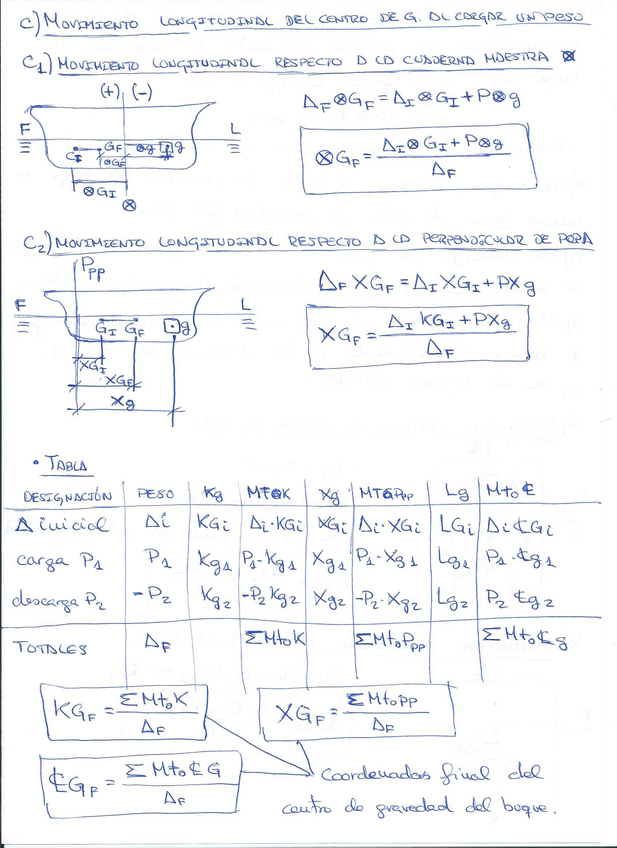 C) MOVIMIENTO LONGITUDINAL DEL CENTRO DE G. AL CARGAR UN PESO
C1) MOVIMIENTO LONGITUDINAL RESPECTO A LA CUADERNA MAESTRA ⊗
(+) (-)
F L
GI GF ⊗g g
⊗GF
⊗GI
⊗
ΔF ⊗GF = ΔI ⊗GI + P⊗g
⊗GF = ΔI ⊗ GI + P⊗g / ΔF
C2) MOVIMIENTO LONGITUDINAL RESPECTO A LA PERPENDICULAR DE POPA
Ppp
F L
GI GF g
XGI
XGF
Xg
ΔF XGF = ΔI XGI + PXg
XGF = ΔI KGI + PXg / ΔF
• TABLA
DESIGNACIÓN PESO Kg MTOK Xg MTOPpp Lg Mto ₵
Δ inicial Δi KGi Δi·KGi XGi Δi·XGi LGi Δi ₵Gi
carga P1 P1 Kg1 P1·Kg1 Xg1 P1·Xg1 Lg1 P1·₵g1
descarga P2 -P2 Kg2 -P2 Kg2 Xg2 -P2·Xg2 Lg2 P2 ₵g2
TOTALES ΔF ΣMtoK ΣMtoPpp ΣMto₵g
KGF = ΣMtoK / ΔF XGF = ΣMtoPP / ΔF
₵GF = ΣMto ₵ G / ΔF Coordenadas final del
centro de gravedad del buque.